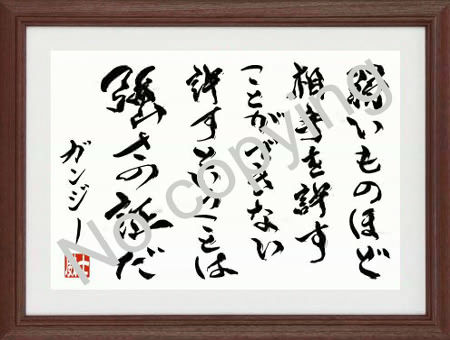 弱いものほど
相手を許す
ことができない
許すということは
強さの証だ
ガンジー
No copying